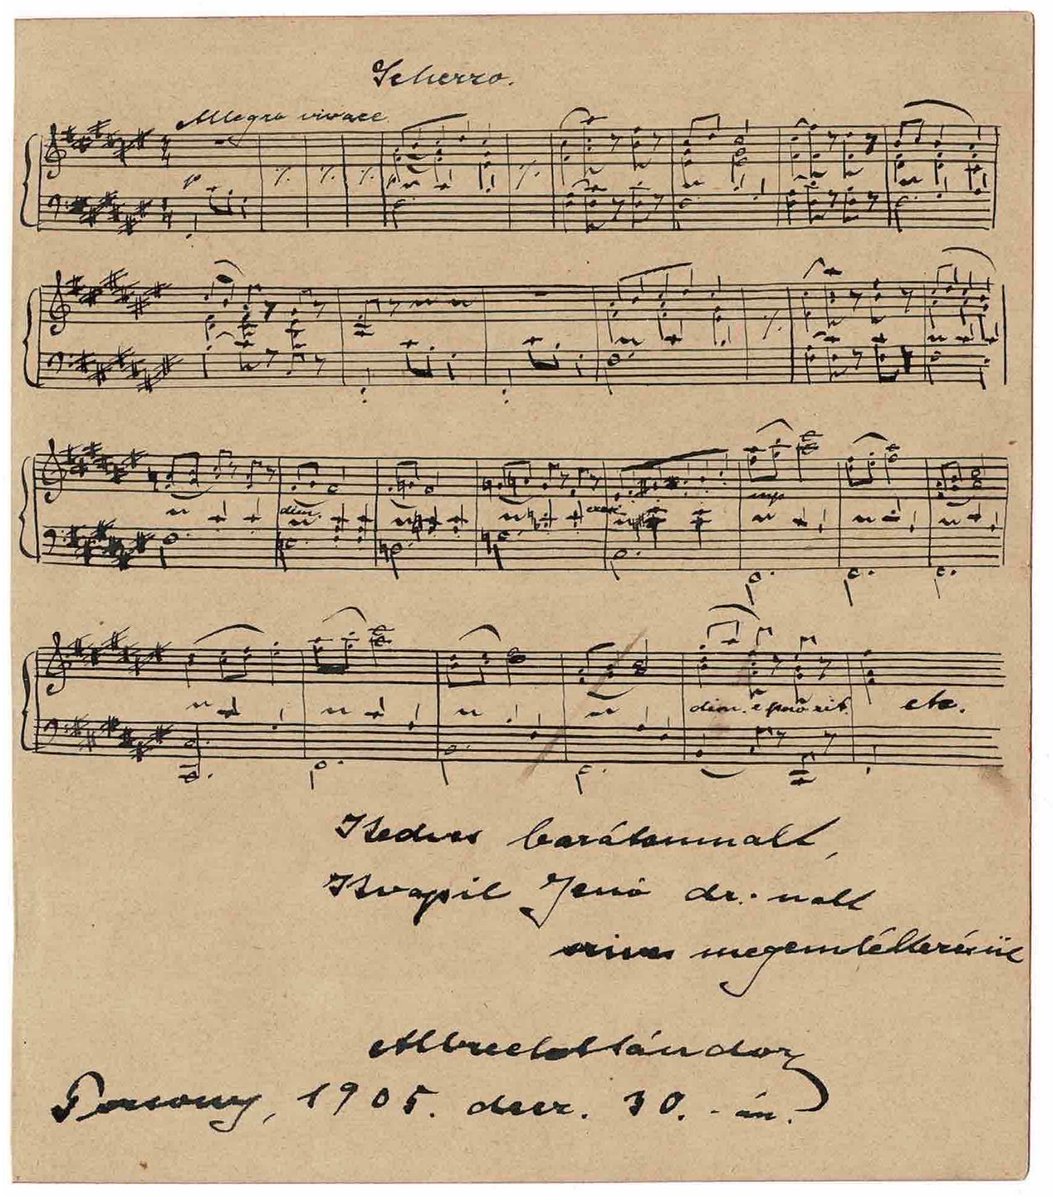 Scherzo.
Allegro vivace
p
dim.
cresc.
mp
dim. e poco rit.
etc.
Kedves barátomnak,
Kvapil Jenő dr.-nak
szives megemlékezésül
Albrecht Sándor
Pozsony, 1905. decz. 30.-án.